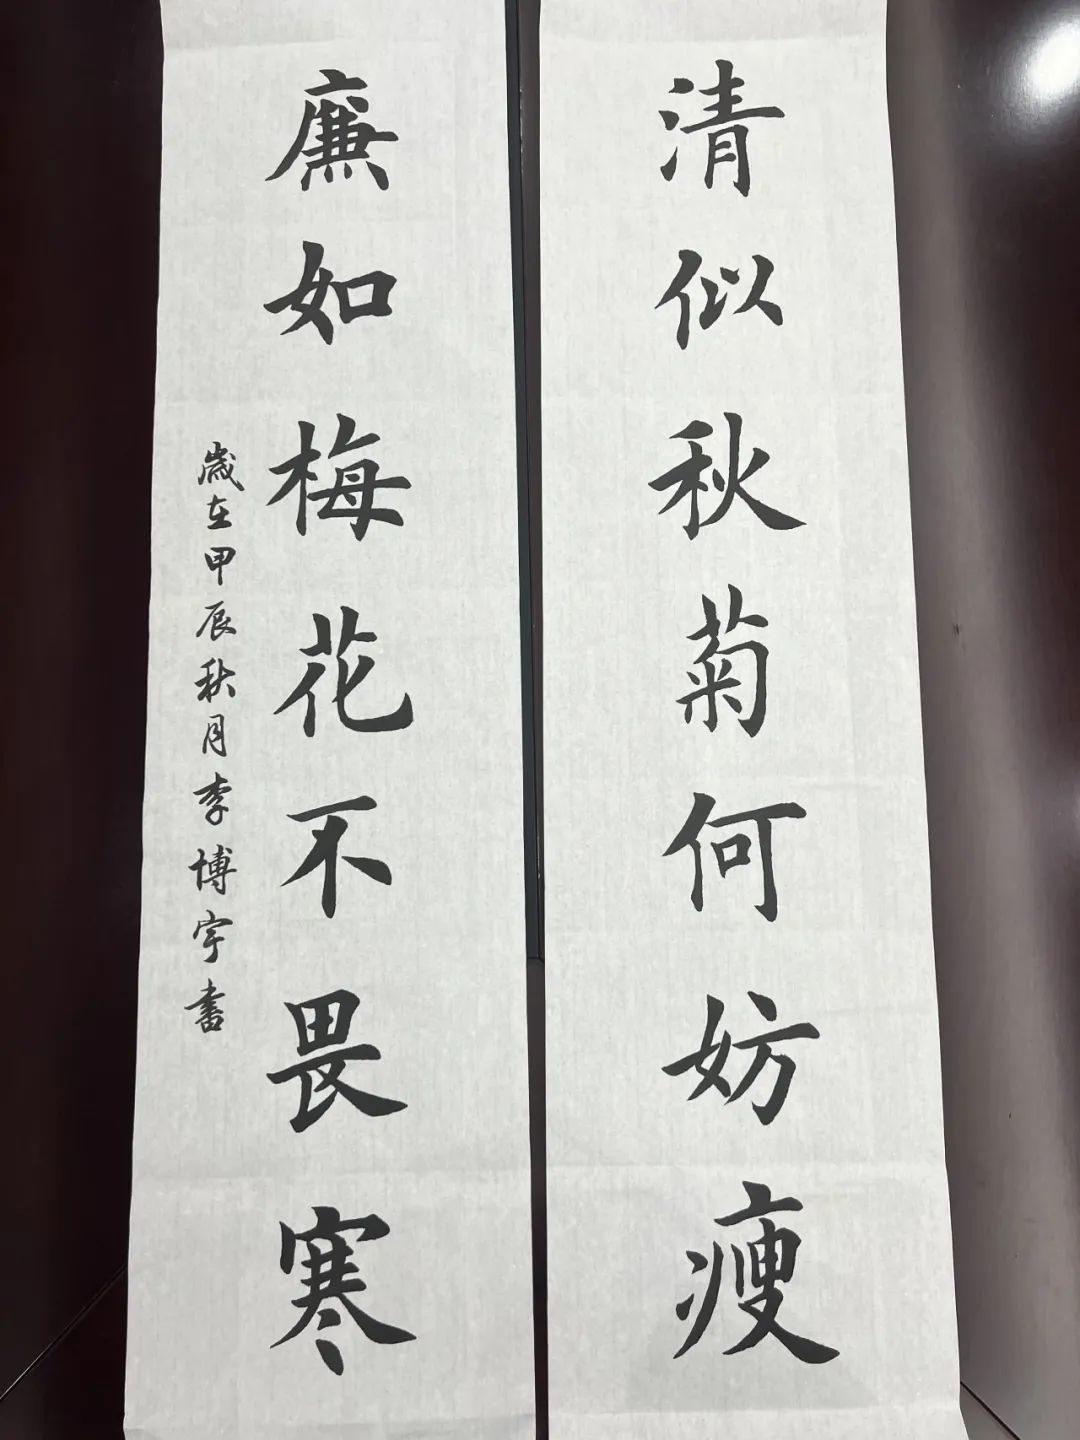 清似秋菊何妨瘦
廉如梅花不畏寒
歲在甲辰秋月李博宇書